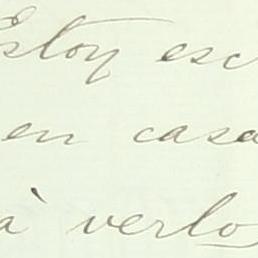 Estoy esc
en casa
à verlo